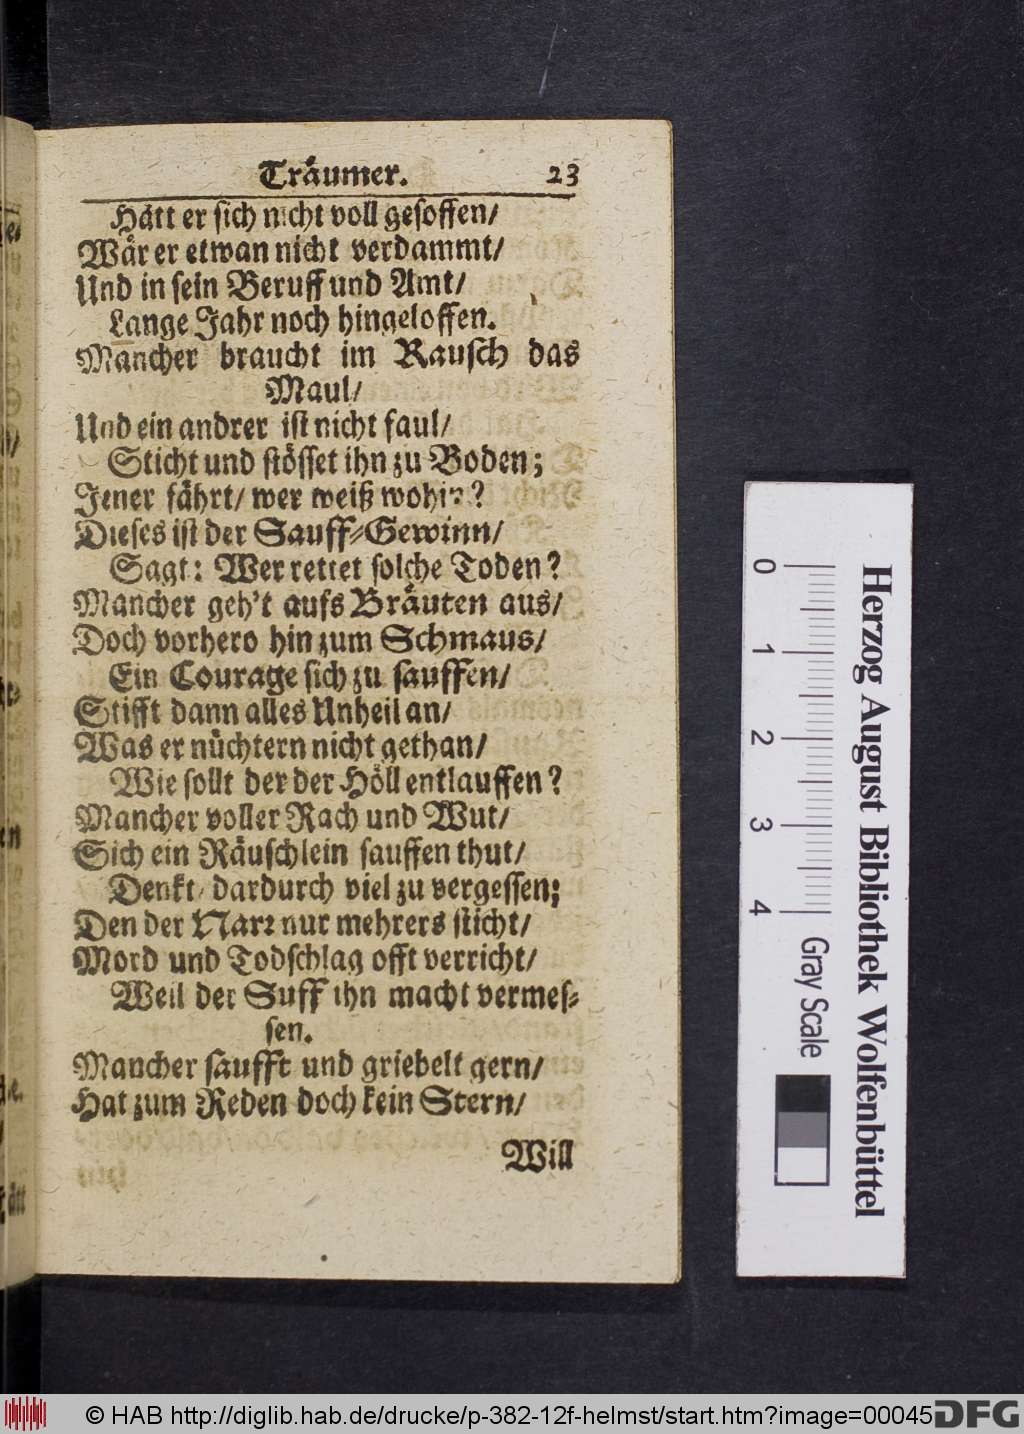 Träumer. 23
Hätt er sich nicht voll gesoffen/
Wär er etwan nicht verdammt/
Und in sein Beruff und Amt/
Lange Jahr noch hingeloffen.
Mancher braucht im Rausch das
Maul/
Und ein andrer ist nicht faul/
Sticht und stösset ihn zu Boden;
Jener fährt/ wer weiß wohin?
Dieses ist der Sauff-Gewinn/
Sagt: Wer rettet solche Toden?
Mancher geh't aufs Bräuten aus/
Doch vorhero hin zum Schmaus/
Ein Courage sich zu sauffen/
Stifft dann alles Unheil an/
Was er nüchtern nicht gethan/
Wie sollt der der Höll entlauffen?
Mancher voller Rach und Wut/
Sich ein Räuschlein sauffen thut/
Denkt/ dardurch viel zu vergessen;
Den der Narr nur mehrers sticht/
Mord und Todschlag offt verricht/
Weil der Suff ihn macht vermes-
sen.
Mancher saufft und griebelt gern/
Hat zum Reden doch kein Stern/
Will
0 1 2 3 4
Gray Scale
Herzog August Bibliothek Wolfenbüttel
© HAB http://diglib.hab.de/drucke/p-382-12f-helmst/start.htm?image=00045
DFG